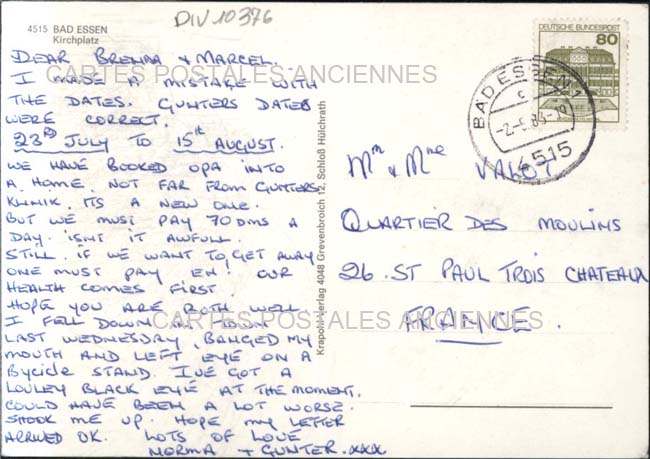 DIV 10376
4515 BAD ESSEN
Kirchplatz
DEAR BRENDA & MARCEL.
I MADE A MISTAGE WITH
THE DATES. GUNTERS DATES
WERE CORRECT.
23RD JULY TO 15th AUGUST.
WE HAVE BOOKED OPA INTO
A HOME. NOT FAR FROM GUNTERS
KLINIK. ITS A NEW ONE.
BUT WE MUST PAY 70 DMS A
DAY. ISNT IT AWFULL.
STILL. IF WE WANT TO GET AWAY
ONE MUST PAY EH! OUR
HEALTH COMES FIRST
HOPE YOU ARE BOTH WELL
I FELL DOWN IN TOWN
LAST WEDNESDAY, BANGED MY
MOUTH AND LEFT EYE ON A
BYCICLE STAND. I'VE GOT A
LOVLEY BLACK EYE AT THE MOMENT.
COULD HAVE BEEN A LOT WORSE.
SHOOK ME UP. HOPE MY LETTER
ARRIVED OK. LOTS OF LOVE
NORMA + GUNTER. xxx
CARTES POSTALES ANCIENNES
CARTES POSTALES ANCIENNES
Krapohl-Verlag 4048 Grevenbroich 12, Schloß Hülchrath
DEUTSCHE BUNDESPOST
80
BAD ESSEN 1
c
4515
Mr & Mme VALOT
QUARTIER DES MOULINS
26. ST PAUL TROIS CHATEAUX
FRANCE.